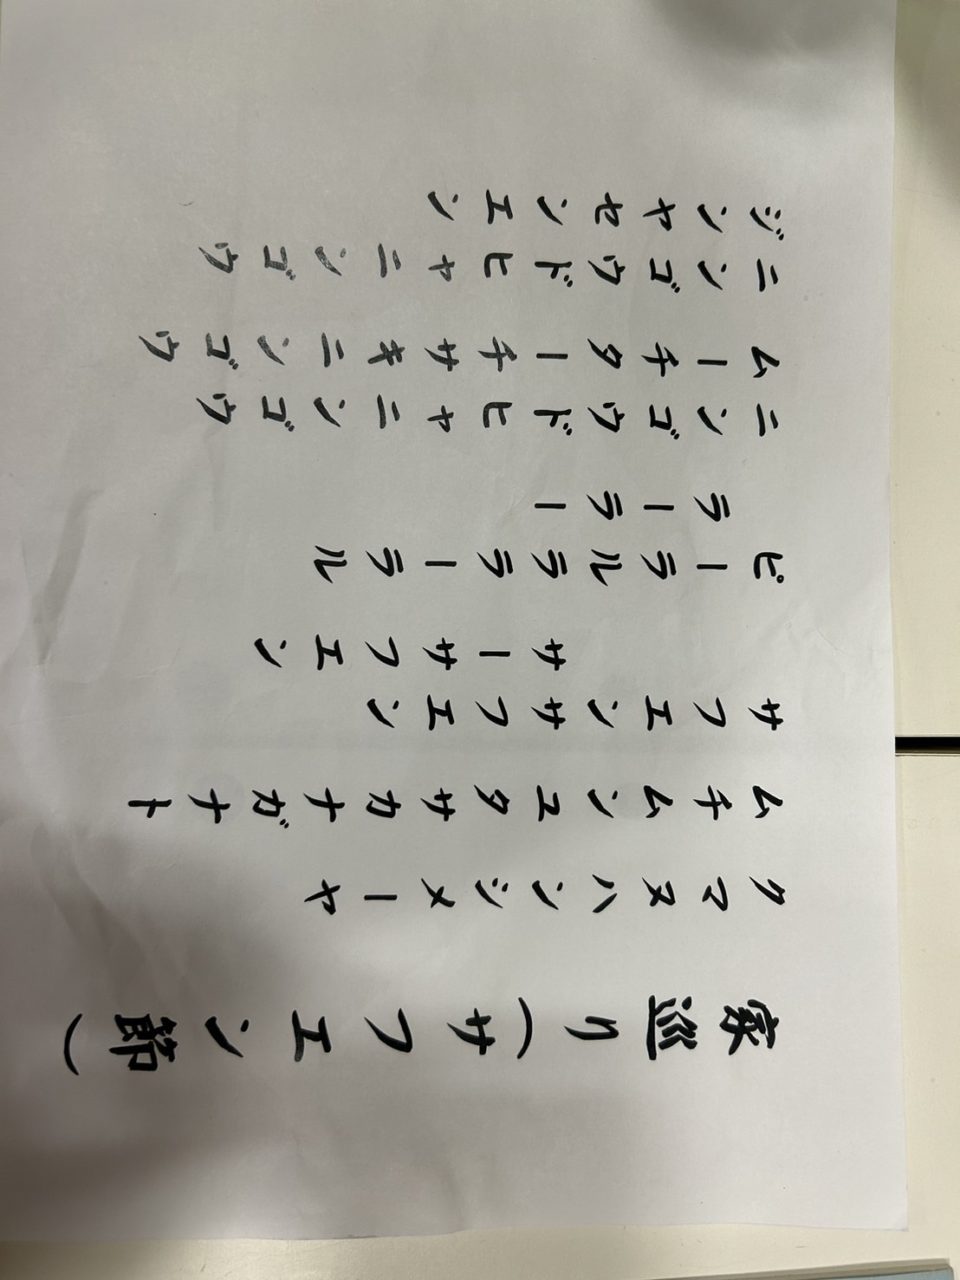 家巡り(サフエン節)
クマヌハンジメーヤ
ムチムンユタサカナガナト
サフエンサフエン
サーサフエン
ピーラルララーラル
ラーラー
ニンゴウドヒヤニンゴウ
ムーチターチサキニンゴウ
ニンゴウドヒヤニンゴウ
ジンヤセンエン